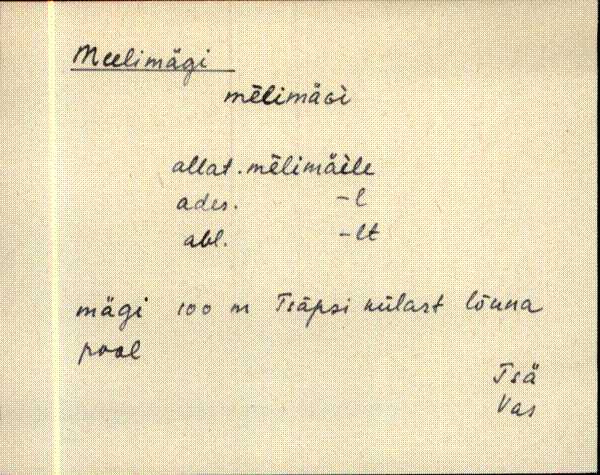 Meelimägi
mēlimäɢì
allat. mēlimäèle
ades. -l
abl. -lt
mägi 100 m Tsäpsi külast lõuna
pool
Tsä
Vas